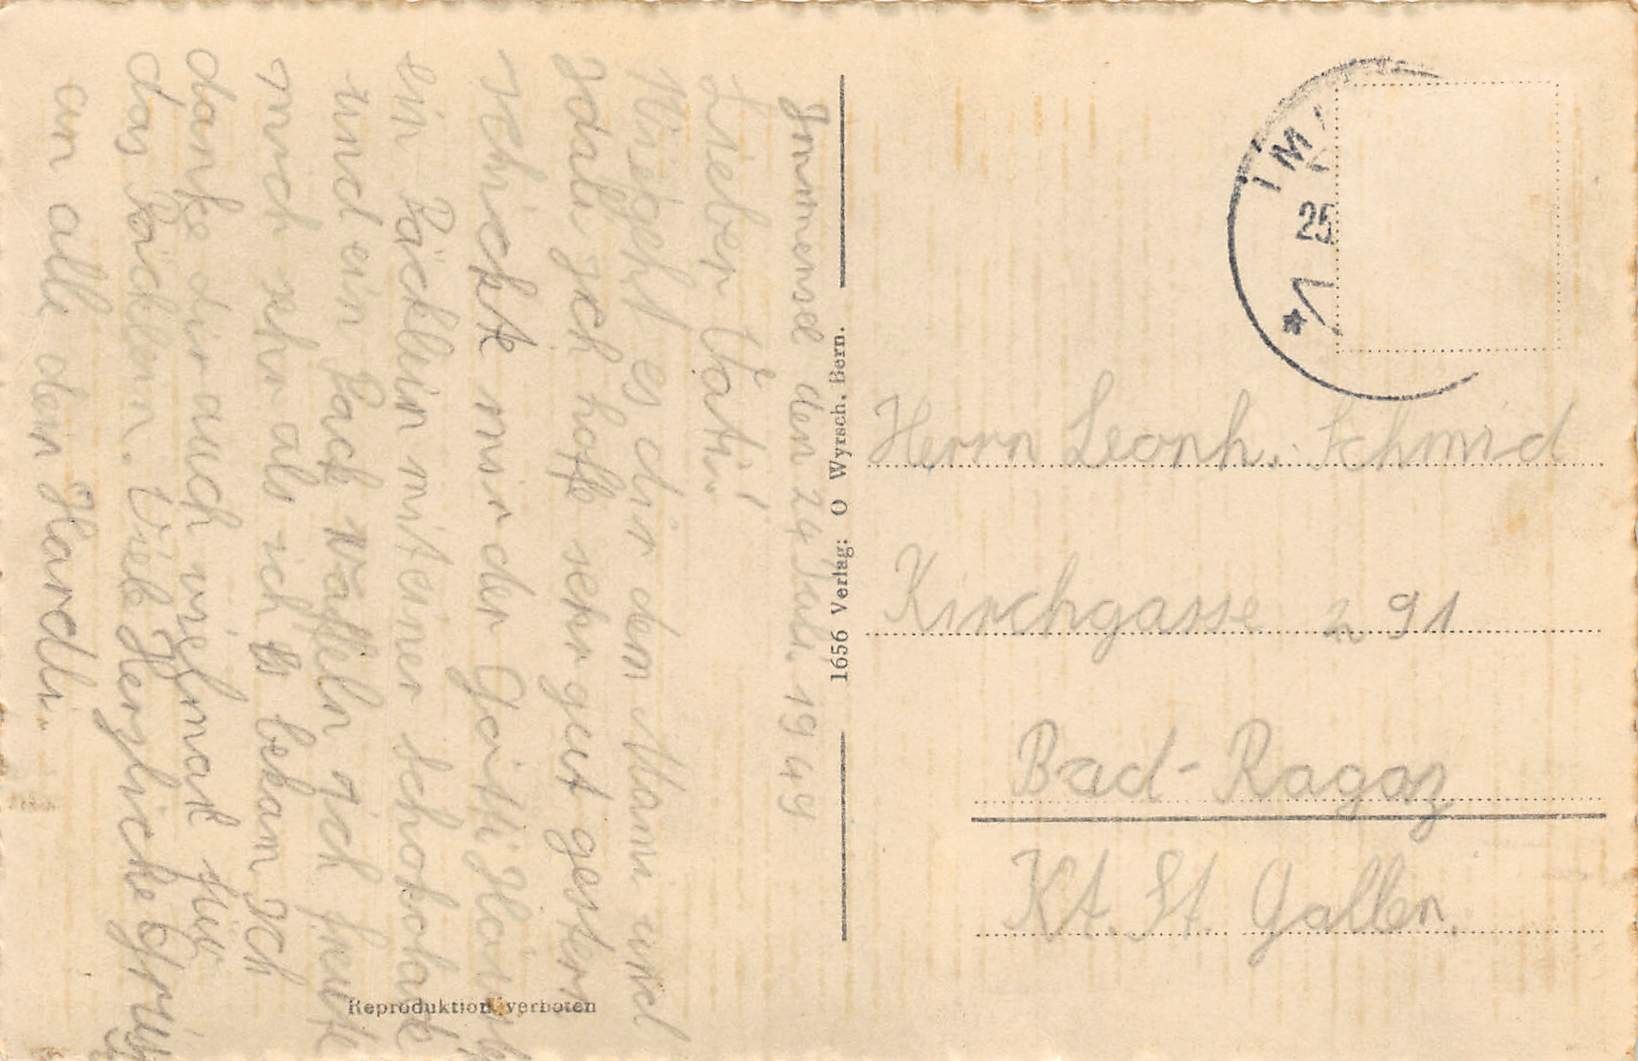 Immensee den 24 Juli. 1949
Lieber Väti!
Wie geht es dir dem Mami und
Idali Ich hoffe sehr gut gestern
schickte mir der Götti Hans
ein Päcklein mit einer Schokolade
und ein Pack Waffeln ich freute
mich sehr als ich es bekam Ich
danke dir auch vielmal für
das Päcklein. Viele Herzliche Grüsse
an alle dein Hardli.
1656 Verlag: O Wyrsch, Bern.
Reproduktion verboten
IM
25
Herrn Leonh. Schmid
Kirchgasse 291
Bad-Ragaz
Kt. St. Gallen.